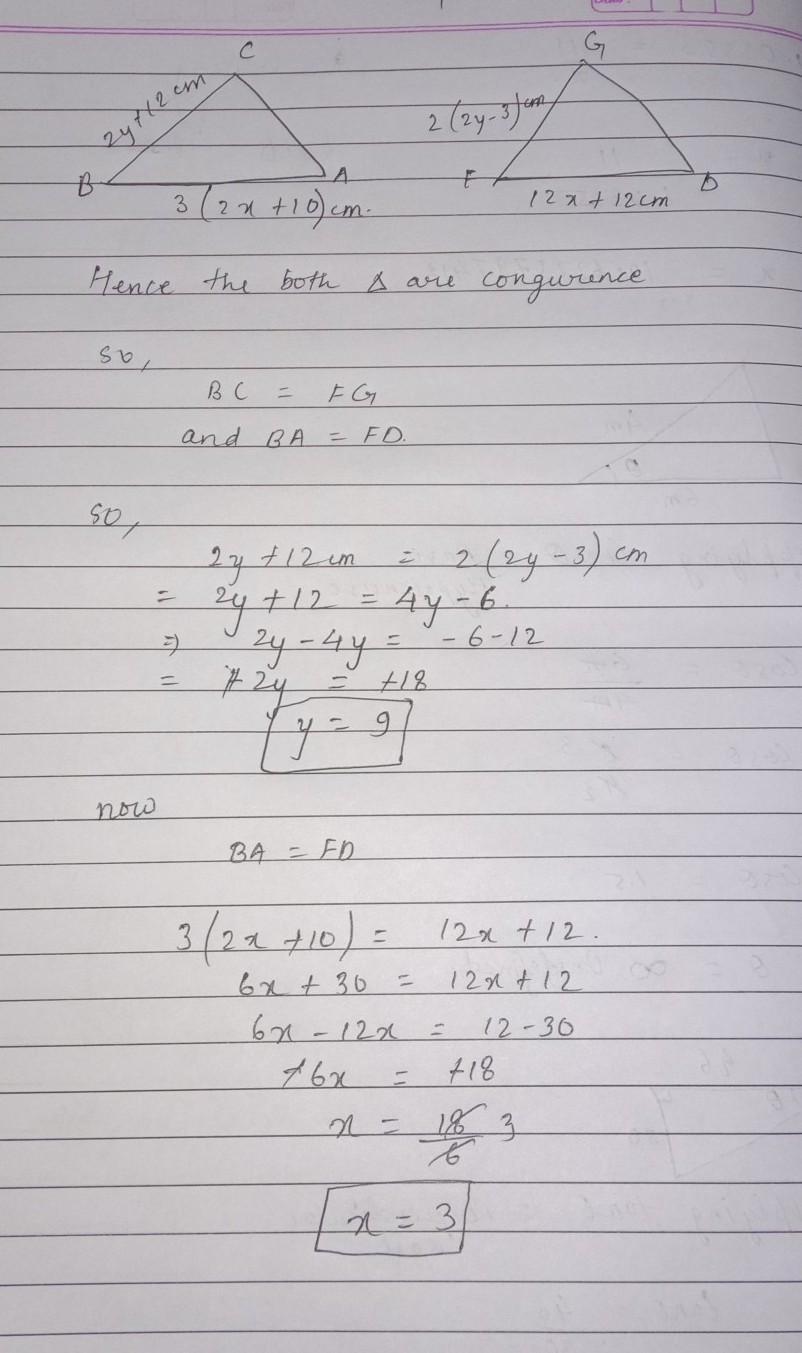 C
G
2y+12 cm
2(2y-3)cm
B
A
F
D
3(2x+10)cm.
12x+12cm
Hence the both Δ are congurence
so,
BC = FG
and BA = FD.
so,
2y+12cm = 2(2y-3) cm
= 2y+12 = 4y-6.
⇒ 2y-4y = -6-12
= +2y = +18
y = 9
now
BA = FD
3(2x+10) = 12x+12.
6x+30 = 12x+12
6x-12x = 12-30
+6x = +18
x = 18/6 3
x = 3